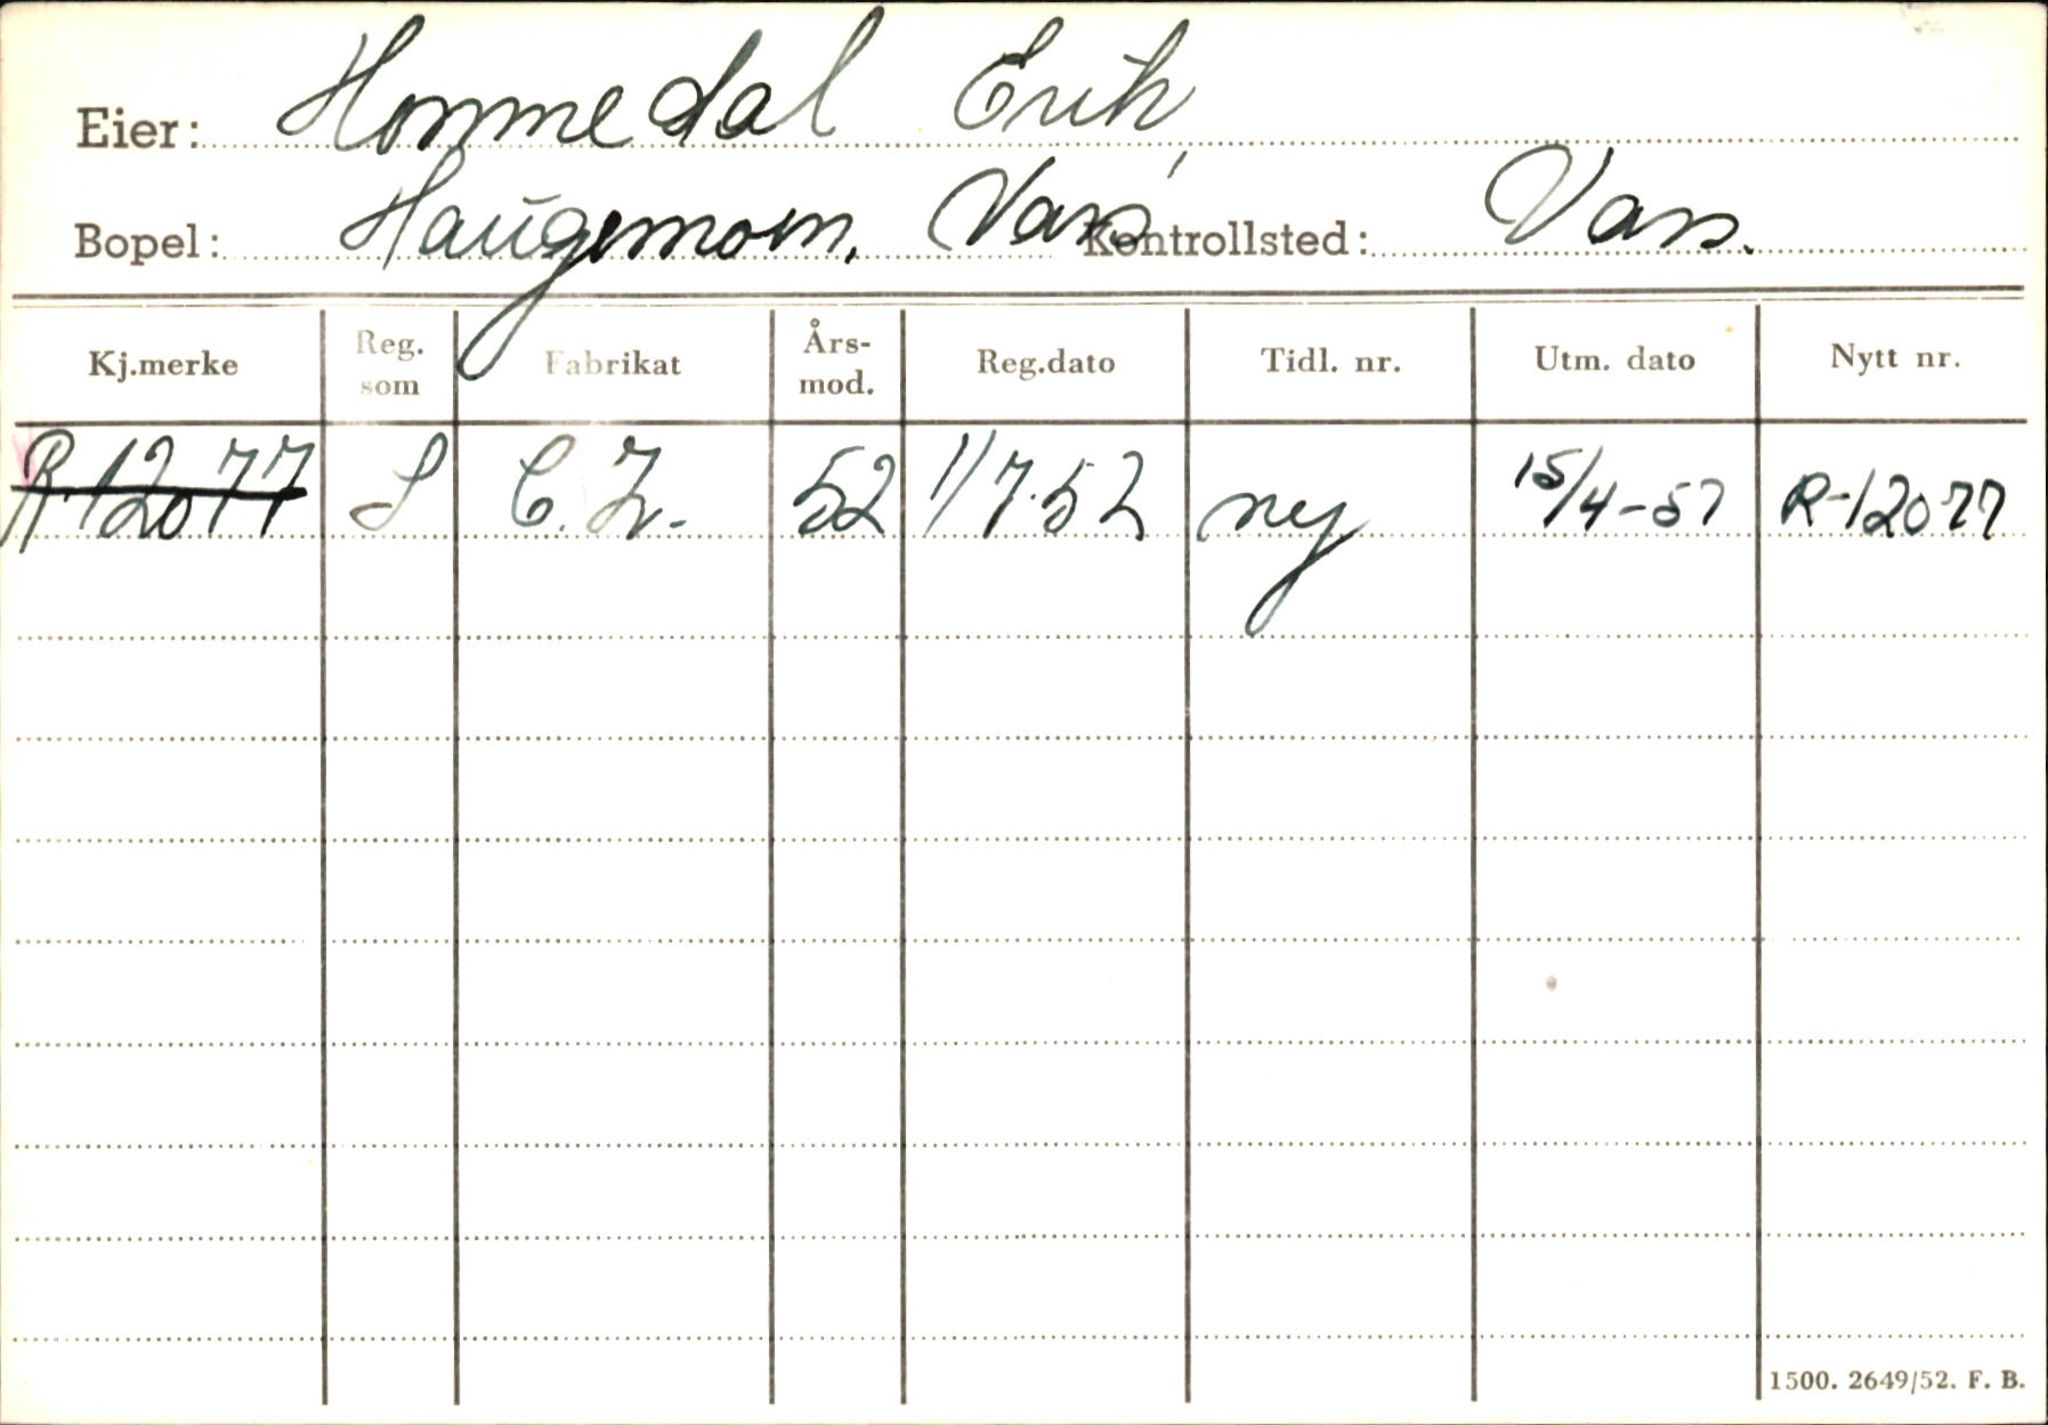 Eier: Hommedal Erik
Bopel: Haugamoen, Vass Kontrollsted: Vass.
Kj.merke Reg. som Fabrikat Års- mod. Reg.dato Tidl. nr. Utm. dato Nytt nr.
R.12077 S C.Z. 52 1/7.52 ny 15/4-57 R-12077
1500. 2649/52. F. B.